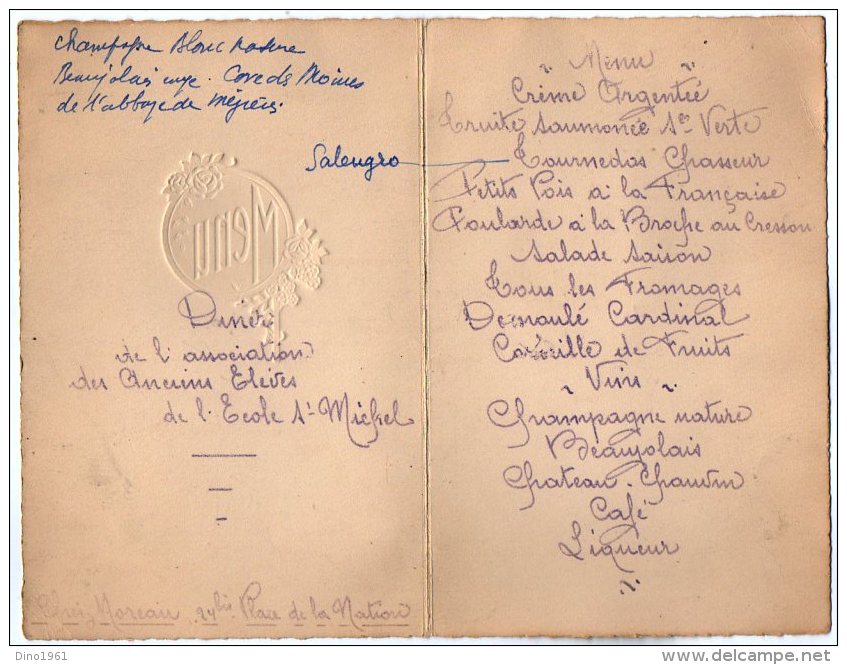 Champagne Blanc nature
Beaujolais rouge. Cave des Moines
de l'abbaye de Mézières
Salengro
Menu
Diner
de l'association
des Anciens Elèves
de l'Ecole St Michel
Chez Moreau 24bis Place de la Nation
Menu
Crème Argentée
Truite Saumonée Sce Verte
Tournedos Chasseur
Petits Pois à la Française
Poularde à la Broche au Cresson
Salade Saison
Tous les Fromages
Demoulé Cardinal
Corbeille de Fruits
Vins
Champagne nature
Beaujolais
Chateau Chauvin
Café
Liqueur
Dino1961
delcampe.net